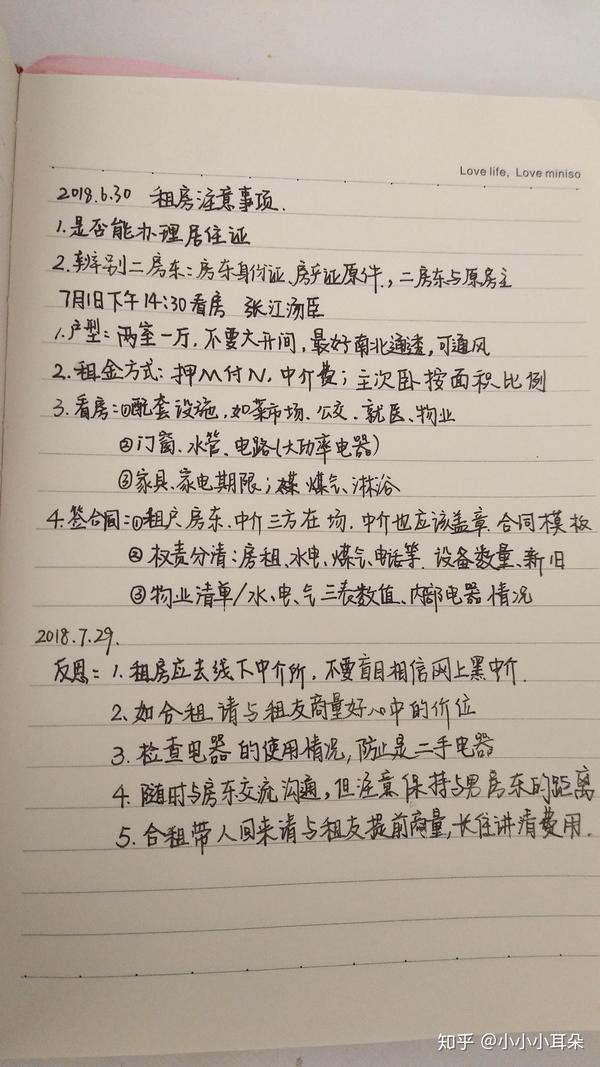 Love life, Love miniso
2018.6.30 租房注意事项.
1.是否能办理居住证
2.辨别二房东:房东身份证、房产证原件,二房东与原房主
7月1日下午14:30看房 张江汤臣
1.户型:两室一厅,不要大开间,最好南北通透,可通风
2.租金方式:押M付N,中介费;主次卧按面积比例
3.看房:①配套设施,如菜市场、公交、就医、物业
②门窗、水管、电路(大功率电器)
③家具、家电期限;煤气、淋浴
4.签合同:①租户、房东、中介三方在场,中介也应该盖章.合同模板
②权责分清:房租、水电、煤气、电话等.设备数量、新旧
③物业清单/水、电、气三表数值、内部电器情况
2018.7.29.
反思:1.租房应去线下中介所,不要盲目相信网上黑中介.
2.如合租请与租友商量好心中的价位
3.检查电器的使用情况,防止是二手电器
4.随时与房东交流沟通,但注意保持与男房东的距离
5.合租带人回来请与租友提前商量,长住讲清费用.
知乎 @小小小耳朵